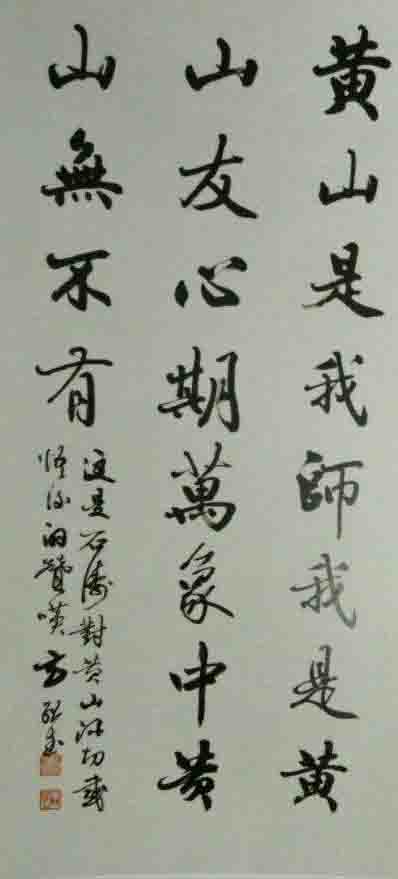 黄山是我師我是黄
山友心期萬象中黄
山無不有
這是石濤對黄山深切感
悟的贊嘆 方